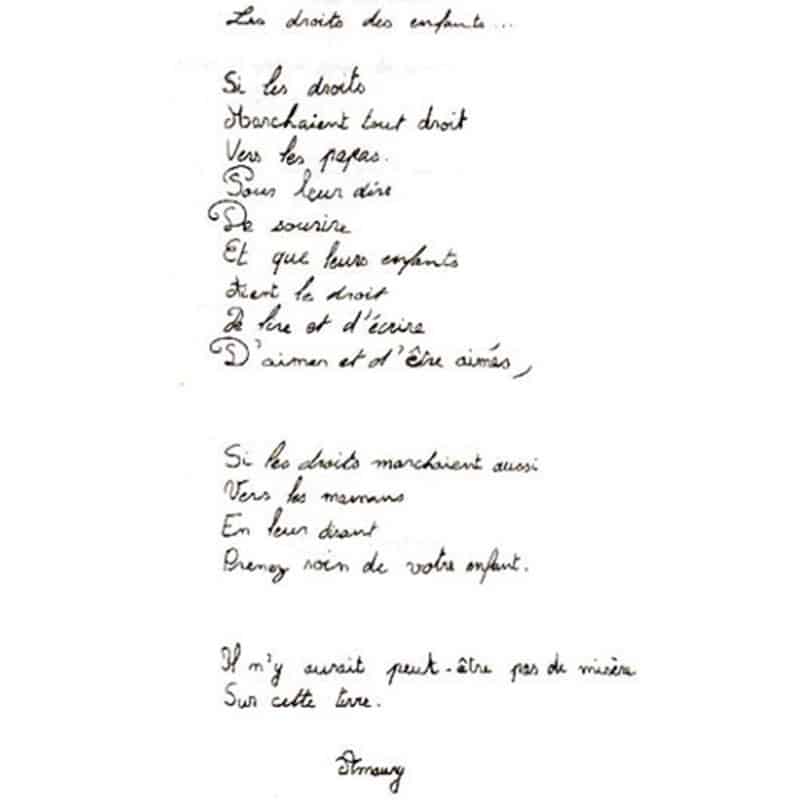 Les droits des enfants...
Si les droits
Marchaient tout droit
Vers les papas.
Pour leur dire
De sourire
Et que leurs enfants
Aient le droit
De lire et d'écrire
D'aimer et d'être aimés,
Si les droits marchaient aussi
Vers les mamans
En leur disant
Prenez soin de votre enfant.
Il n'y aurait peut-être pas de misère
Sur cette terre.
Amaury